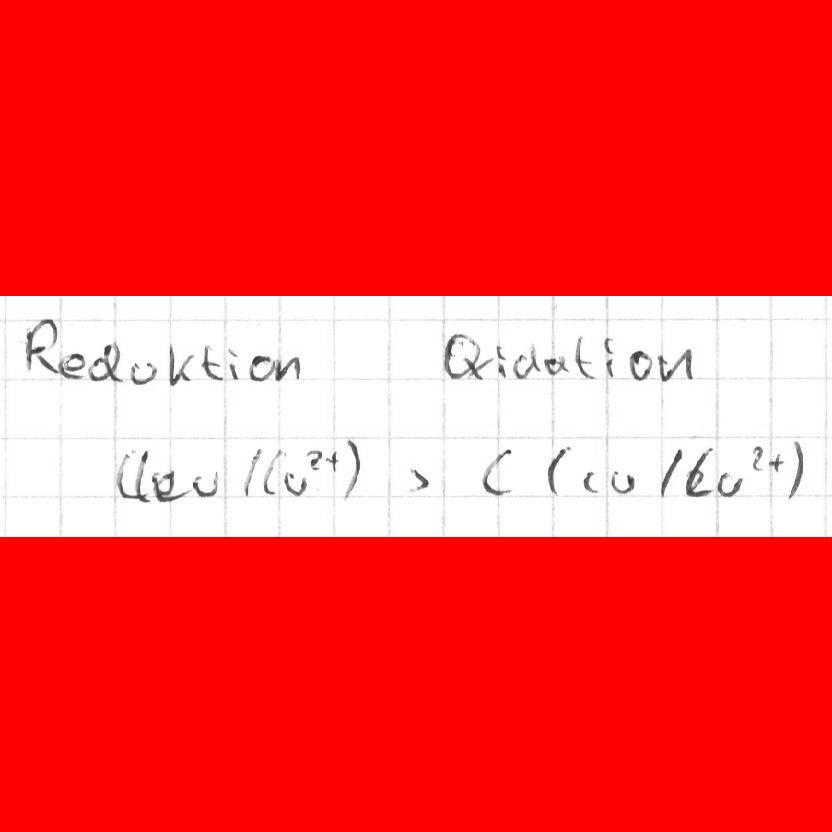 Reduktion Oxidation
c(Cu/Cu²⁺) > c (Cu/Cu²⁺)